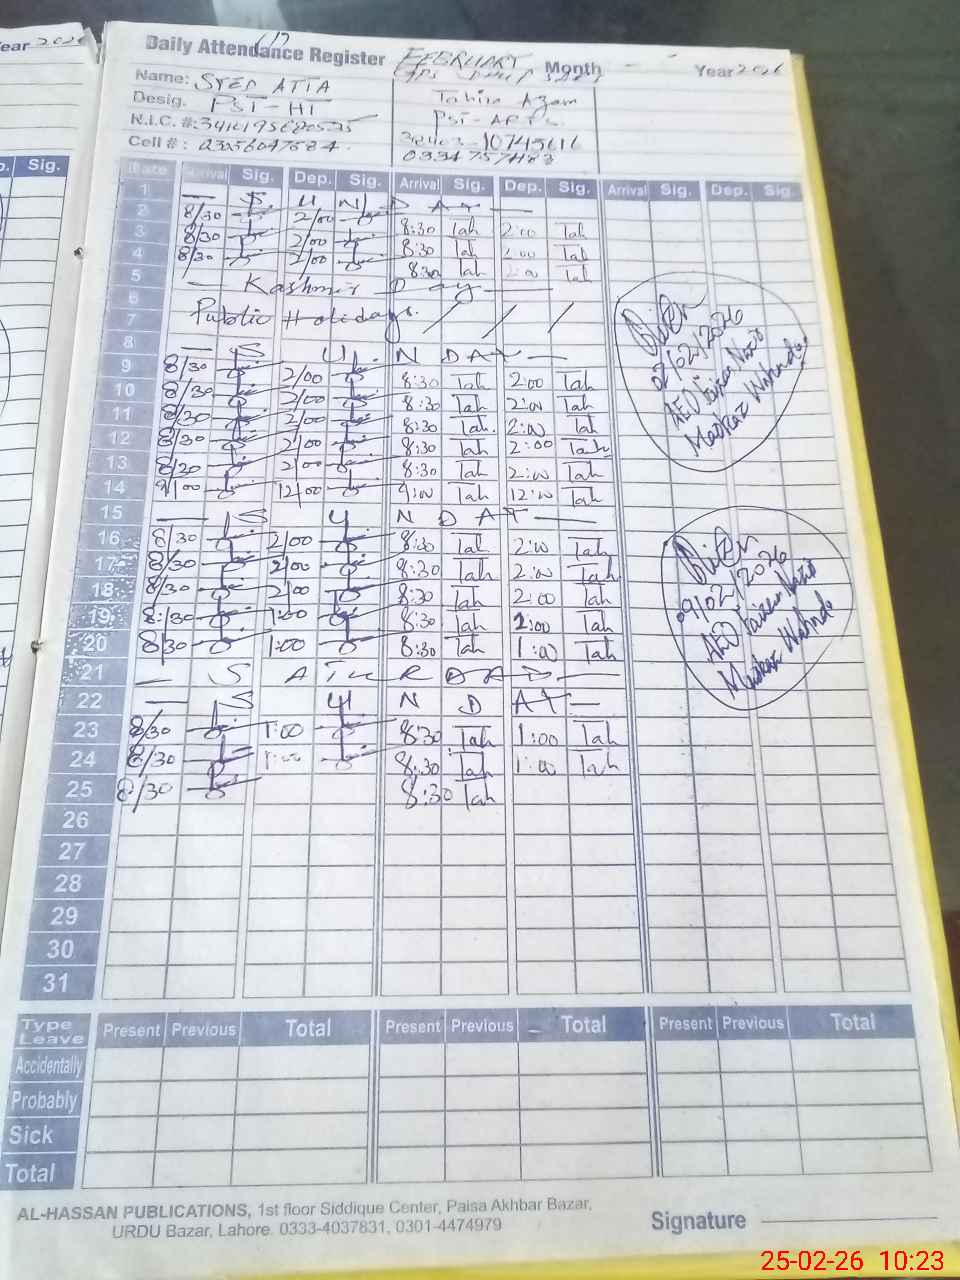 Year 2026
Daily Attendance Register FEBRUARY Month Year 2026
Name: SYED ATTA
Desig. PST-HT
N.I.C. #:
Cell # :
Tahira Azam
PST-
Sig.
Date Arrival Sig. Dep. Sig. Arrival Sig. Dep. Sig. Arrival Sig. Dep. Sig.
1 — S U N D A Y —
2 8/30 2/00 8:30 Tah 2:00 Tah
3 8/30 2/00 8:30 Tah 2:00 Tah
4 8/30 2/00 8:30 Tah 2:00 Tah
5 — Kashmir Day —
6 Public Holidays.
7
8 — S U N D A Y —
9 8/30 2/00 8:30 Tah 2:00 Tah
10 8/30 2/00 8:30 Tah 2:00 Tah
11 8/30 2/00 8:30 Tah 2:00 Tah
12 8/30 2/00 8:30 Tah 2:00 Tah
13 8/30 2/00 8:30 Tah 2:00 Tah
14 9/00 12/00 9:00 Tah 12:00 Tah
15 — S U N D A Y —
16 8/30 2/00 8:30 Tah 2:00 Tah
17 8/30 2/00 8:30 Tah 2:00 Tah
18 8/30 2/00 8:30 Tah 2:00 Tah
19 8/30 1:00 8:30 Tah 1:00 Tah
20 8/30 1:00 8:30 Tah 1:00 Tah
21 — S A T U R D A Y —
22 — S U N D A Y —
23 8/30 1:00 8:30 Tah 1:00 Tah
24 8/30 1:00 8:30 Tah 1:00 Tah
25 8/30 8:30 Tah
26
27
28
29
30
31
02/02/2026
AEO
Markaz Wahndo
09/02/2026
AEO
Markaz Wahndo
Type Leave Present Previous Total Present Previous Total Present Previous Total
Accidentally
Probably
Sick
Total
AL-HASSAN PUBLICATIONS, 1st floor Siddique Center, Paisa Akhbar Bazar,
URDU Bazar, Lahore. 0333-4037831, 0301-4474979
Signature
25-02-26 10:23